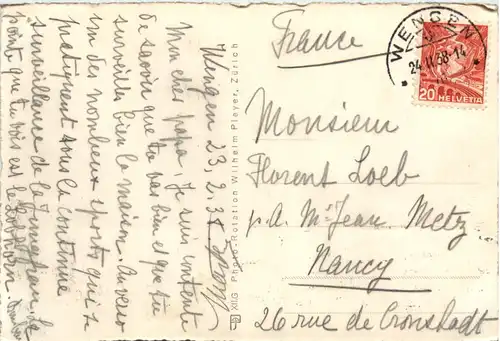 Wengen 23.2.38
Mon cher papa, Je suis contente
de savoir que tu vas bien et que tu
surveilles bien la maison. Ici
un des nombreux sports qui se
pratiquent sous la continue
surveillance de la Jungfrau. La
pointe que tu vois est le
Photo-Rotation Wilhelm Pleyer, Zürich
France
WENGEN
24.II.38-14
20 HELVETIA
Monsieur
Florent Loeb
p.a. Mr Jean Metz
Nancy
26 rue de Cronstadt